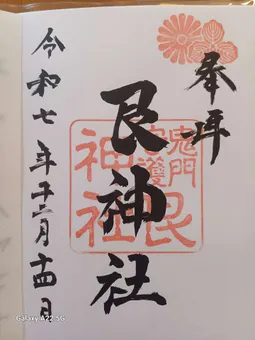 奉拝
艮神社
鬼門
守護
艮
神社
令和七年十二月十四日
Galaxy A22 5G